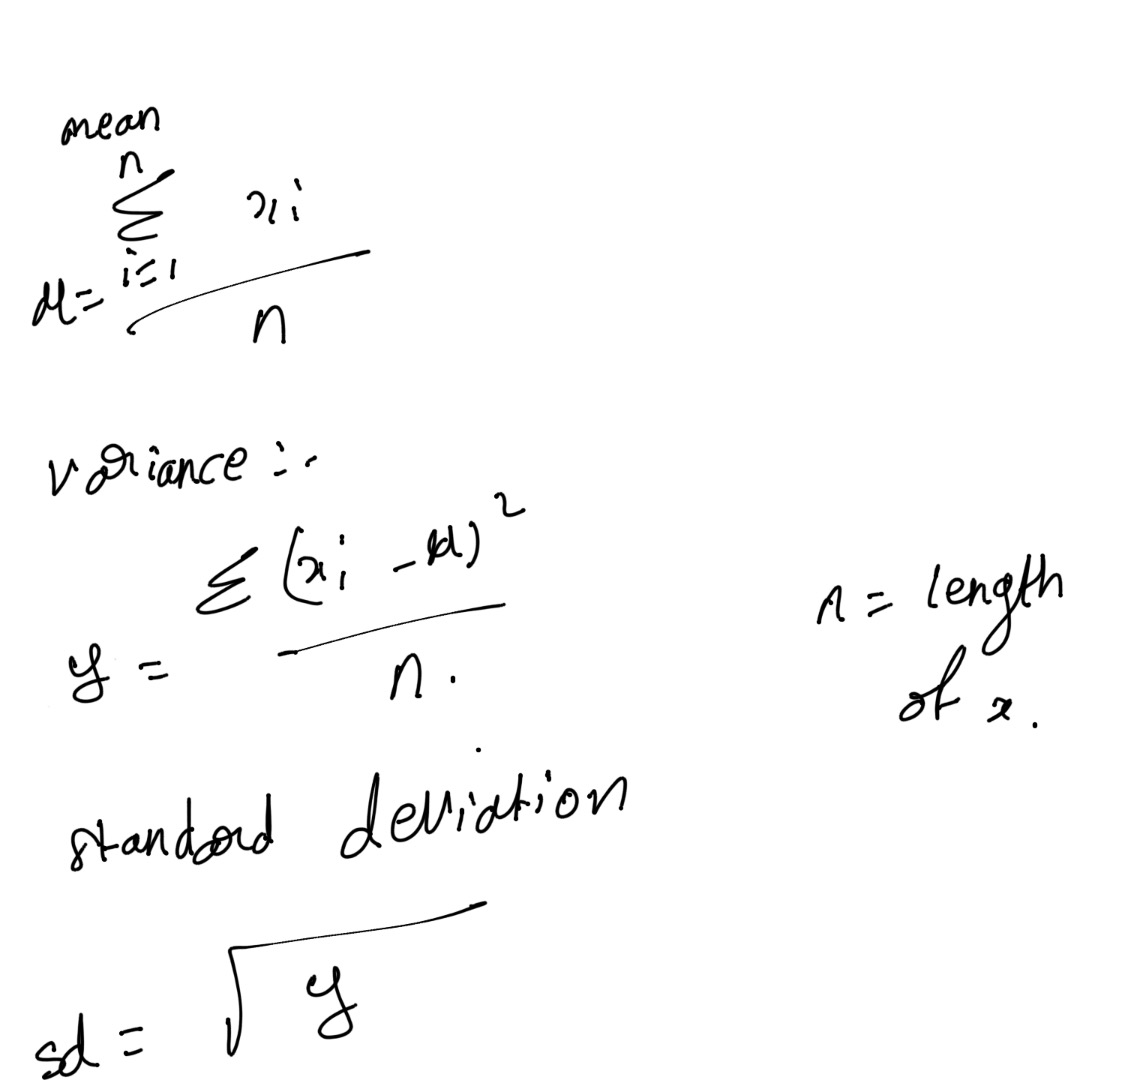 mean
n
Σ xi
i=1
μ=
n
variance :-
Σ (xi - μ)²
y =
n.
n = length
of x.
standard deviation
sd = √y